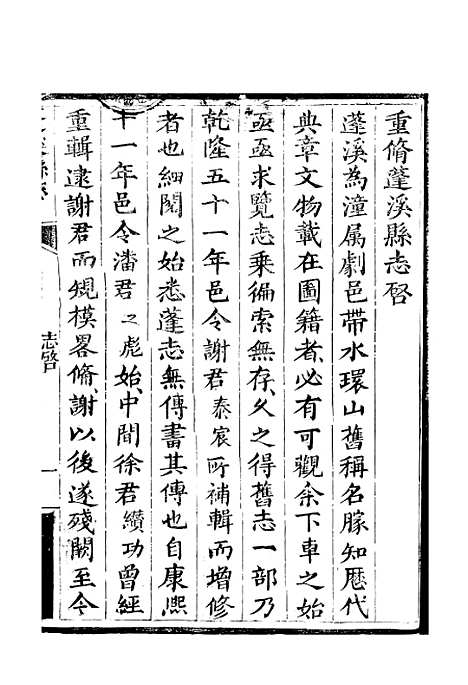 重脩蓬溪縣志啓
蓬溪為潼属劇邑帶水環山舊稱名勝知歷代
典章文物載在圖籍者必有可觀余下車之始
亟亟求覽志乘徧索無存久之得舊志一部乃
乾隆五十一年邑令謝君泰宸所補輯而增修
者也細閱之始悉蓬志無傳書其傳也自康熙
十一年邑令潘君之彪始中間徐君纘功曾經
重輯逮謝君而規模畧脩謝以後遂殘闕至今
志啓
一